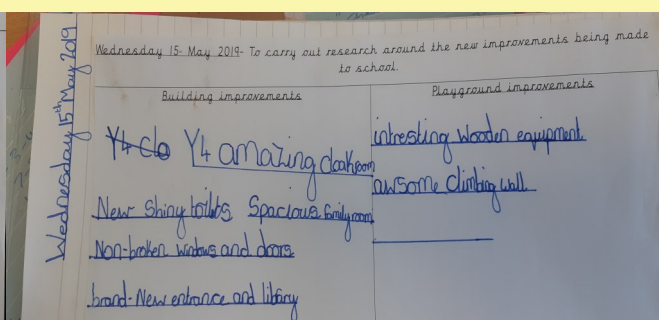 Wednesday 15th May 2019
Wednesday 15- May 2019- To carry out research around the new improvements being made
to school.
Building improvements
Y4 clo Y4 amazing cloakroom
New shiny toilets Spacious family room
Non-broken windows and doors
brand-New entrance and libary
Playground improvements
intresting wooden equipment
awsome climbing wall